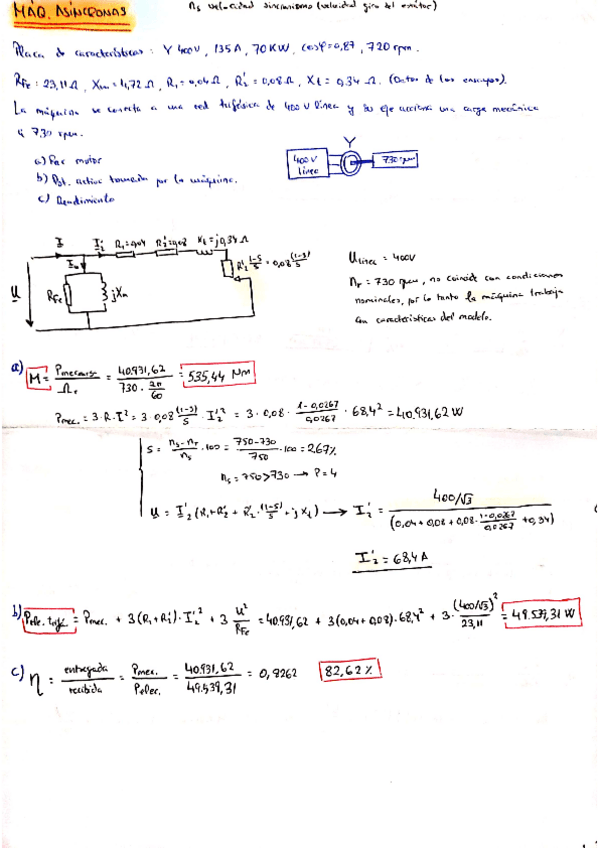 MÁQ. ASÍNCRONAS
ns velocidad sincronismo (velocidad giro del estátor)
Placa de características: Y 400V, 135A, 70KW, cosφ=0,87, 720 rpm.
RFe: 23,11Ω, Xm=4,72Ω, R1=0,04Ω, R2'=0,08Ω, Xt=0,34Ω. (Datos de los ensayos).
La máquina se conecta a una red trifásica de 400V línea y su eje acciona una carga mecánica
a 730 rpm.
a) Par motor
b) Pot. activa tomada por la máquina.
c) Rendimiento
Y
400V
línea
730 rpm
I I2' R1=0,04 R2'=0,08 Xt=j0,34Ω
I0
U RFe jXm
R2' (1-S)/S = 0,08 (1-S)/S
U línea = 400V
nr = 730 rpm, no coincide con condiciones
nominales, por lo tanto la máquina trabaja
con características del modelo.
a) M = Pmec / Ωr = 40.931,62 / (730 · 2π/60) = 535,44 Nm
Pmec. = 3·R·I² = 3·0,08 (1-S)/S · I2'² = 3 · 0,08 · (1-0,0267)/0,0267 · 68,4² = 40.931,62 W
S = (ns-nr)/ns · 100 = (750-730)/750 · 100 = 2,67%
ns = 750 > 730 → P = 4
U = I2' (R1+R2' + R2' · (1-S)/S + jXt) → I2' = (400/√3) / (0,04+0,08+0,08 · (1-0,0267)/0,0267 + 0,34)
I2' = 68,4 A
b) Pele. = Pmec. + 3(R1+R2')·I2'² + 3 U²/RFe = 40.931,62 + 3(0,04+0,08)·68,4² + 3·(400/√3)²/23,11 = 49.539,31 W
c) η = entregada/recibida = Pmec./Pelec. = 40.931,62/49.539,31 = 0,8262 82,62%